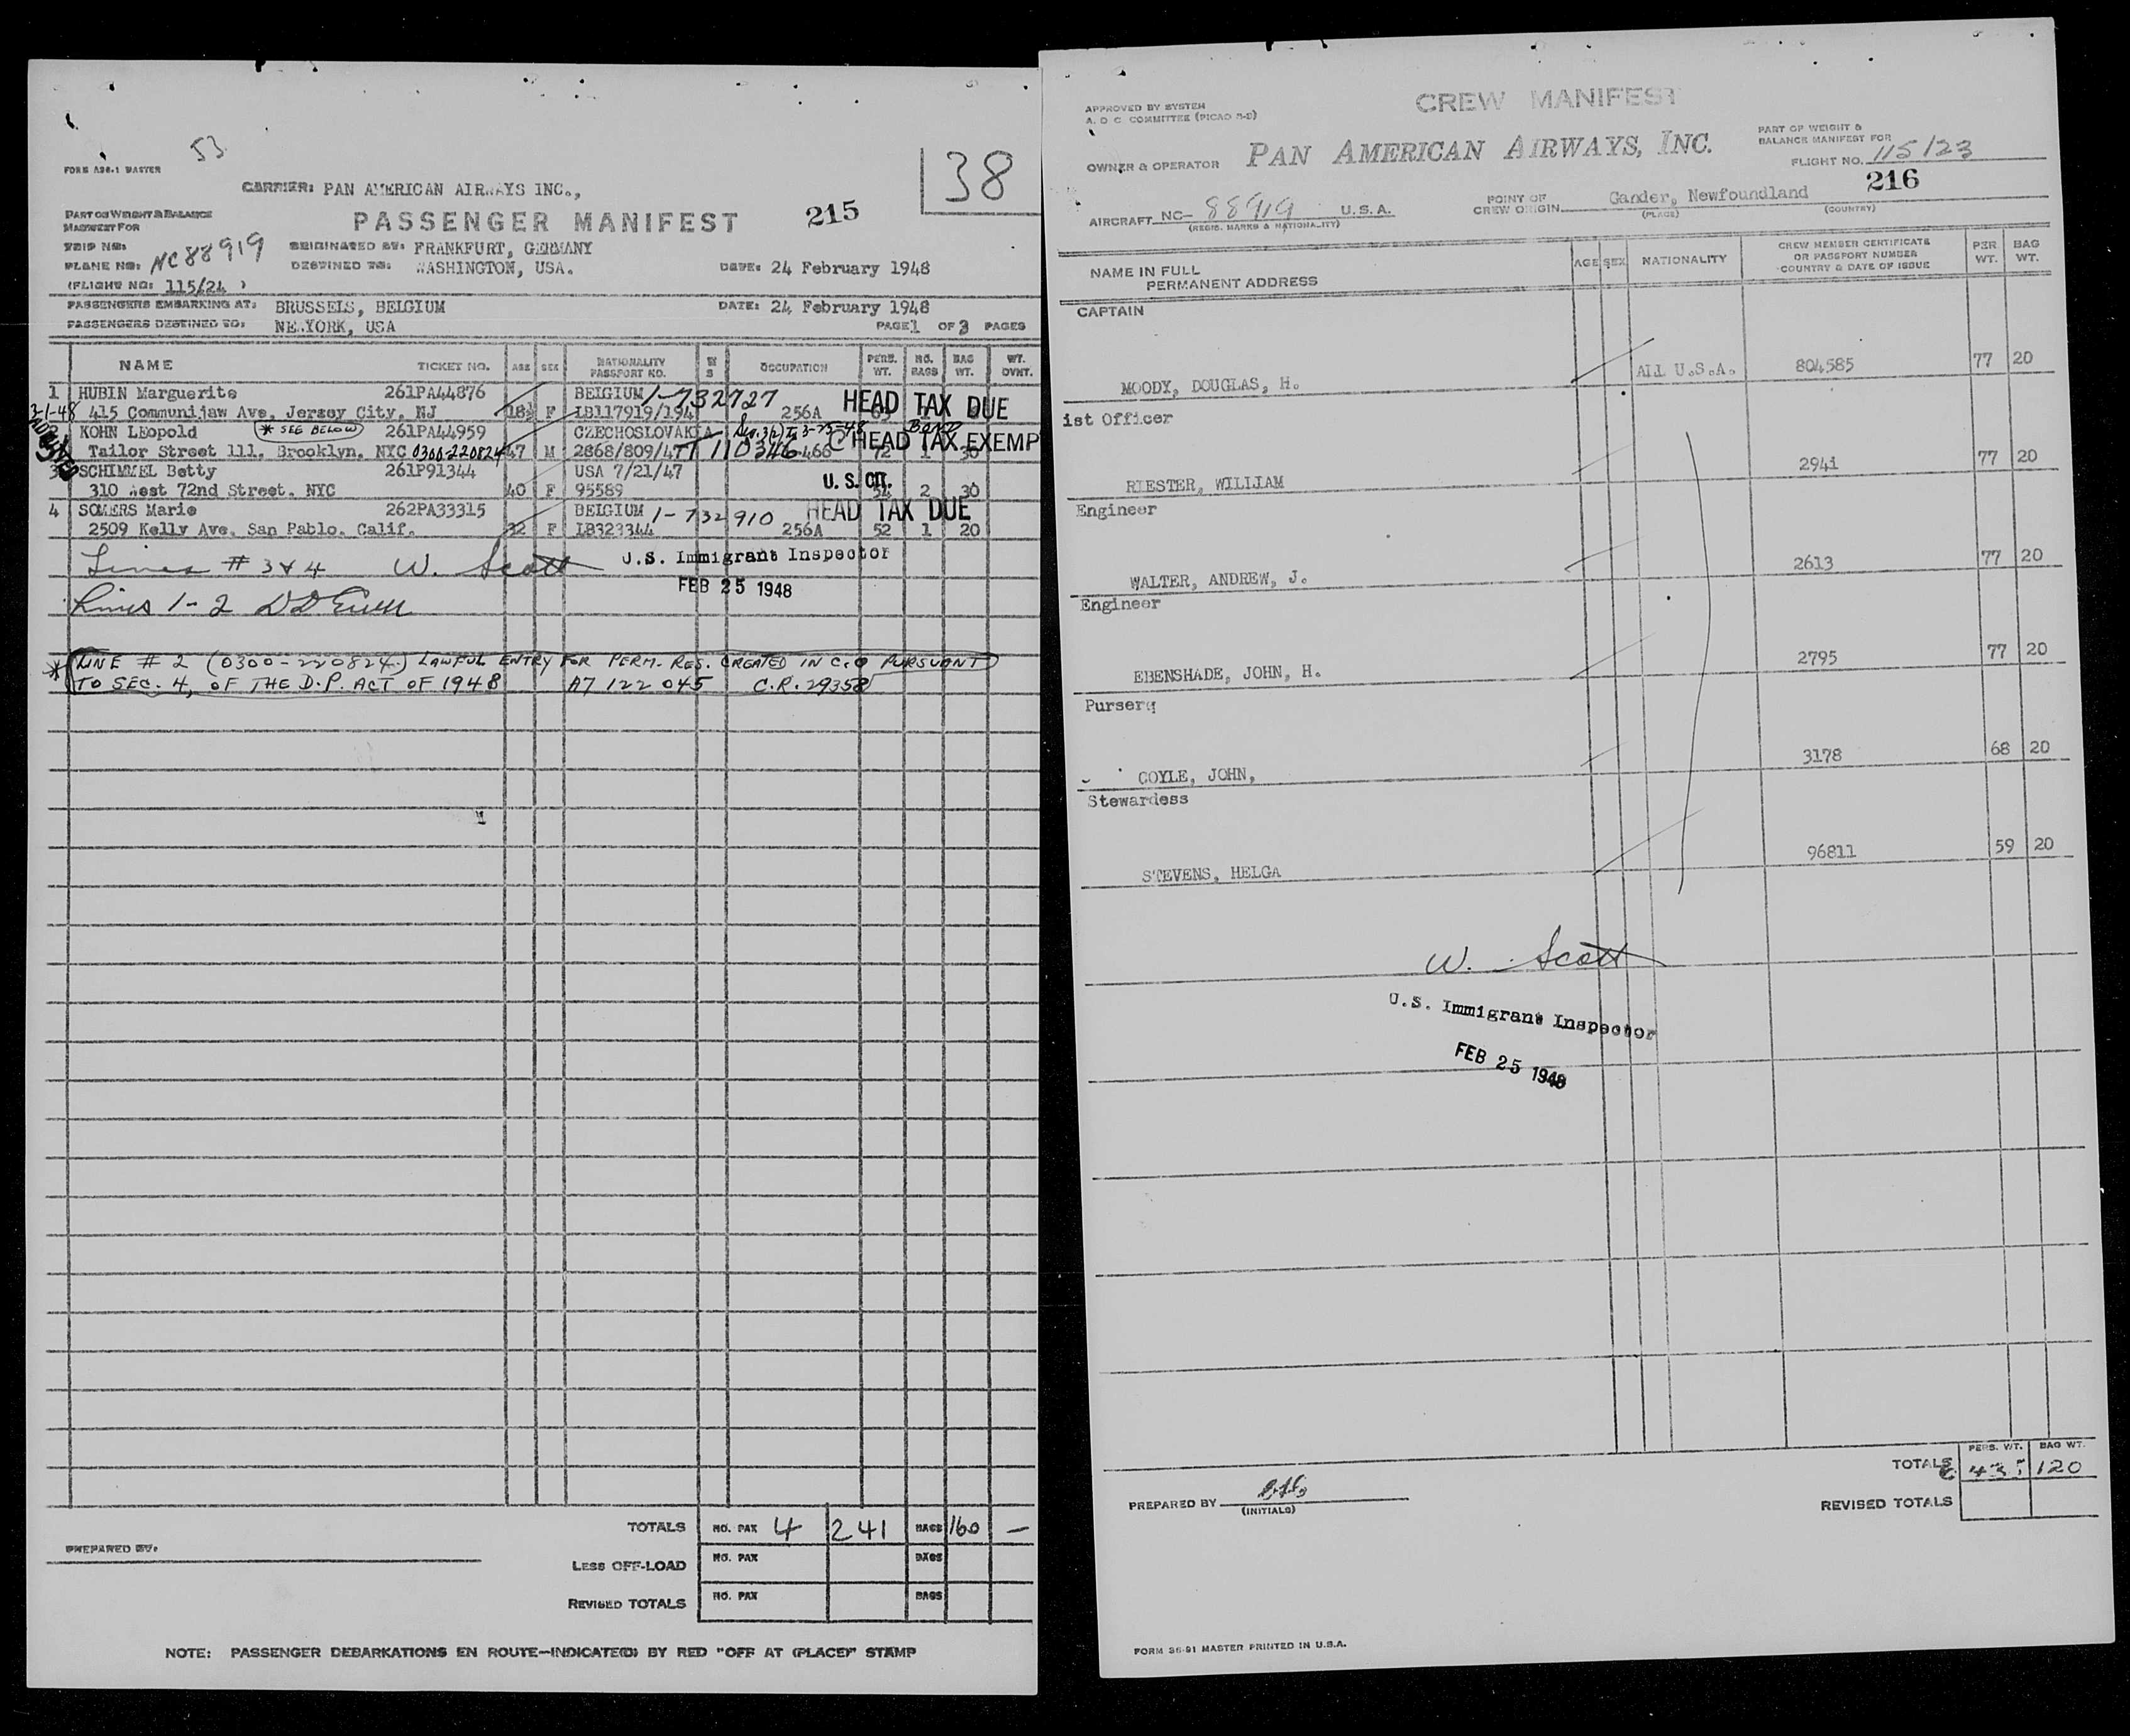 53
38
FORM A36-1 MASTER
CARRIER: PAN AMERICAN AIRWAYS INC.,
PART OF WEIGHT & BALANCE
MANIFEST FOR
PASSENGER MANIFEST
215
TRIP NO:
PLANE NO: NC88919
ORIGINATED AT: FRANKFURT, GERMANY
DESTINED TO: WASHINGTON, USA.
DATE: 24 February 1948
(FLIGHT NO: 115/24 )
PASSENGERS EMBARKING AT: BRUSSELS, BELGIUM
DATE: 24 February 1948
PASSENGERS DESTINED TO: NE.YORK, USA
PAGE 1 OF 3 PAGES
NAME TICKET NO. AGE SEX NATIONALITY PASSPORT NO. M S OCCUPATION PERS. WT. NO. BAGS BAG WT. WT. OVHT.
1 HUBIN Marguerite 261PA44876 BELGIUM 1-732727 HEAD TAX DUE
3-1-48 415 Communijaw Ave, Jersey City, NJ 18½ F LB117919/194 256A
KOHN LEopold * SEE BELOW 261PA44959 CZECHOSLOVAKIA 3-25-48 Bond
HEAD TAX EXEMP
Tailor Street 111, Brooklyn, NYC 0300-220824 47 M 2868/809/47 T 110346 72 1 30
3 SCHIMMEL Betty 261P91344 USA 7/21/47 U.S. CIT.
310 West 72nd Street, NYC 40 F 95589 54 2 30
4 SOMERS Marie 262PA33315 BELGIUM 1-732910 HEAD TAX DUE
2509 Kelly Ave, San Pablo, Calif. 32 F LB323344 256A 52 1 20
Lines # 3 & 4 W. Scott U.S. Immigrant Inspector
FEB 25 1948
Lines 1-2
* LINE # 2 (0300-220824) LAWFUL ENTRY FOR PERM. RES. CREATED IN C.O PURSUANT
TO SEC. 4, OF THE D.P. ACT OF 1948 A7 122 045 C.R. 29358
TOTALS NO. PAX 4 241 BAGS 160 —
PREPARED BY:
LESS OFF-LOAD NO. PAX BAGS
REVISED TOTALS NO. PAX BAGS
NOTE: PASSENGER DEBARKATIONS EN ROUTE—INDICATE(D) BY RED "OFF AT (PLACE)" STAMP
APPROVED BY SYSTEM
A. D C. COMMITTEE (PICAO
CREW MANIFEST
OWNER & OPERATOR PAN AMERICAN AIRWAYS, INC.
PART OF WEIGHT &
BALANCE MANIFEST FOR
FLIGHT NO. 115/23
216
AIRCRAFT NC- 88919 U.S.A.
(REGIS. MARKS & NATIONALITY)
POINT OF
CREW ORIGIN Gander, Newfoundland
(PLACE) (COUNTRY)
NAME IN FULL
PERMANENT ADDRESS
AGE SEX NATIONALITY
CREW MEMBER CERTIFICATE
OR PASSPORT NUMBER
COUNTRY & DATE OF ISSUE
PER. WT. BAG WT.
CAPTAIN
MOODY, DOUGLAS, H. ALL U.S.A. 804585 77 20
1st Officer
RIESTER, WILLIAM 2941 77 20
Engineer
WALTER, ANDREW, J. 2613 77 20
Engineer
EBENSHADE, JOHN, H. 2795 77 20
Purserq
COYLE, JOHN, 3178 68 20
Stewardess
STEVENS, HELGA 96811 59 20
W. Scott
U.S. Immigrant Inspector
FEB 25 1948
PERS. WT. BAG WT.
TOTALS 435 120
PREPARED BY
(INITIALS)
REVISED TOTALS
FORM 36-91 MASTER PRINTED IN U.S.A.